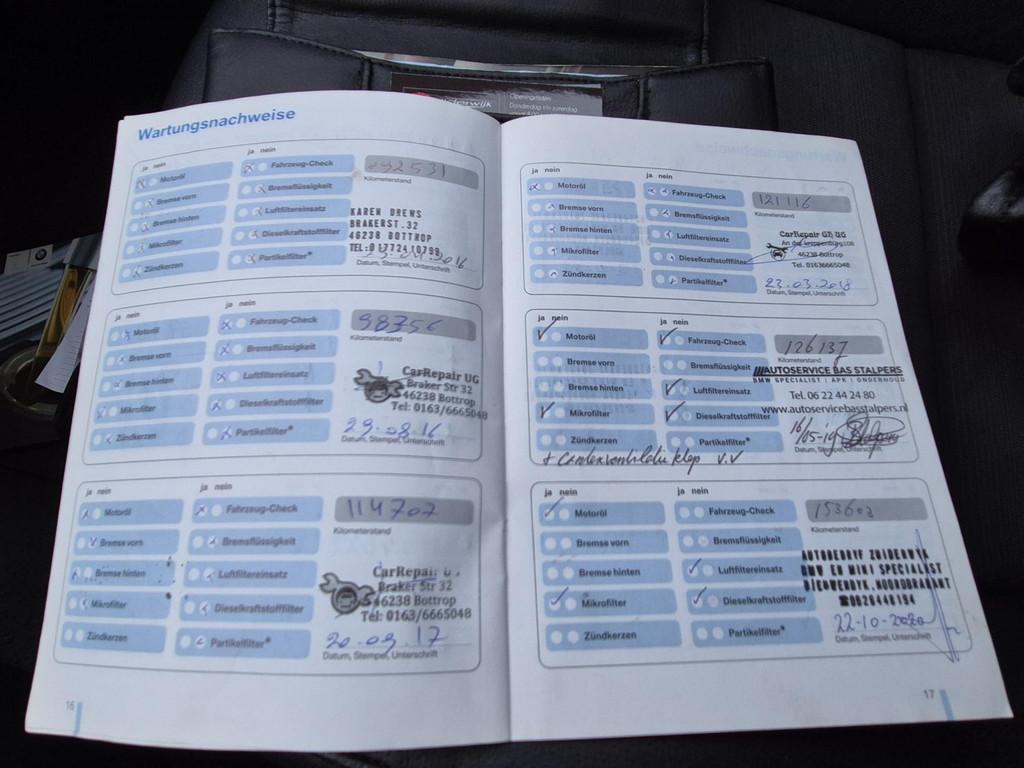 Openingstijden
Donderdag t/m zaterdag
Wartungsnachweise
ja nein
ja nein
Motoröl
Fahrzeug-Check
Bremse vorn
Bremsflüssigkeit
Bremse hinten
Luftfiltereinsatz
Mikrofilter
Dieselkraftstofffilter
Zündkerzen
Partikelfilter*
Kilometerstand
KAREN DREWS
BRAKERST.32
46238 BOTTROP
TEL:01772410799
Datum, Stempel, Unterschrift
ja nein
ja nein
Motoröl
Fahrzeug-Check
Bremse vorn
Bremsflüssigkeit
Bremse hinten
Luftfiltereinsatz
Mikrofilter
Dieselkraftstofffilter
Zündkerzen
Partikelfilter*
98756
Kilometerstand
CarRepair UG
Braker Str 32
46238 Bottrop
Tel: 0163/6665048
29.08.16
Datum, Stempel, Unterschrift
ja nein
ja nein
Motoröl
Fahrzeug-Check
Bremse vorn
Bremsflüssigkeit
Bremse hinten
Luftfiltereinsatz
Mikrofilter
Dieselkraftstofffilter
Zündkerzen
Partikelfilter*
114707
Kilometerstand
CarRepair
Braker Str 32
46238 Bottrop
Tel: 0163/6665048
20.09.17
Datum, Stempel, Unterschrift
16
ja nein
ja nein
Motoröl
Fahrzeug-Check
Bremse vorn
Bremsflüssigkeit
Bremse hinten
Luftfiltereinsatz
Mikrofilter
Dieselkraftstofffilter
Zündkerzen
Partikelfilter*
121116
Kilometerstand
CarRepair UG
46238 Bottrop
Tel. 01636665048
23.03.2018
Datum, Stempel, Unterschrift
ja nein
ja nein
Motoröl
Fahrzeug-Check
Bremse vorn
Bremsflüssigkeit
Bremse hinten
Luftfiltereinsatz
Mikrofilter
Dieselkraftstofffilter
Zündkerzen
Partikelfilter*
126137
Kilometerstand
AUTOSERVICE BAS STALPERS
BMW SPECIALIST | APK | ONDERHOUD
Tel. 06 22 44 24 80
www.autoservicebasstalpers.nl
16/05-19
Datum, Stempel, Unterschrift
klep v.v
ja nein
ja nein
Motoröl
Fahrzeug-Check
Bremse vorn
Bremsflüssigkeit
Bremse hinten
Luftfiltereinsatz
Mikrofilter
Dieselkraftstofffilter
Zündkerzen
Partikelfilter*
153602
Kilometerstand
AUTOBEDRYF ZUIDERWYK
BMW EN MINI SPECIALIST
☎0626448194
22-10-2020
Datum, Stempel, Unterschrift
17